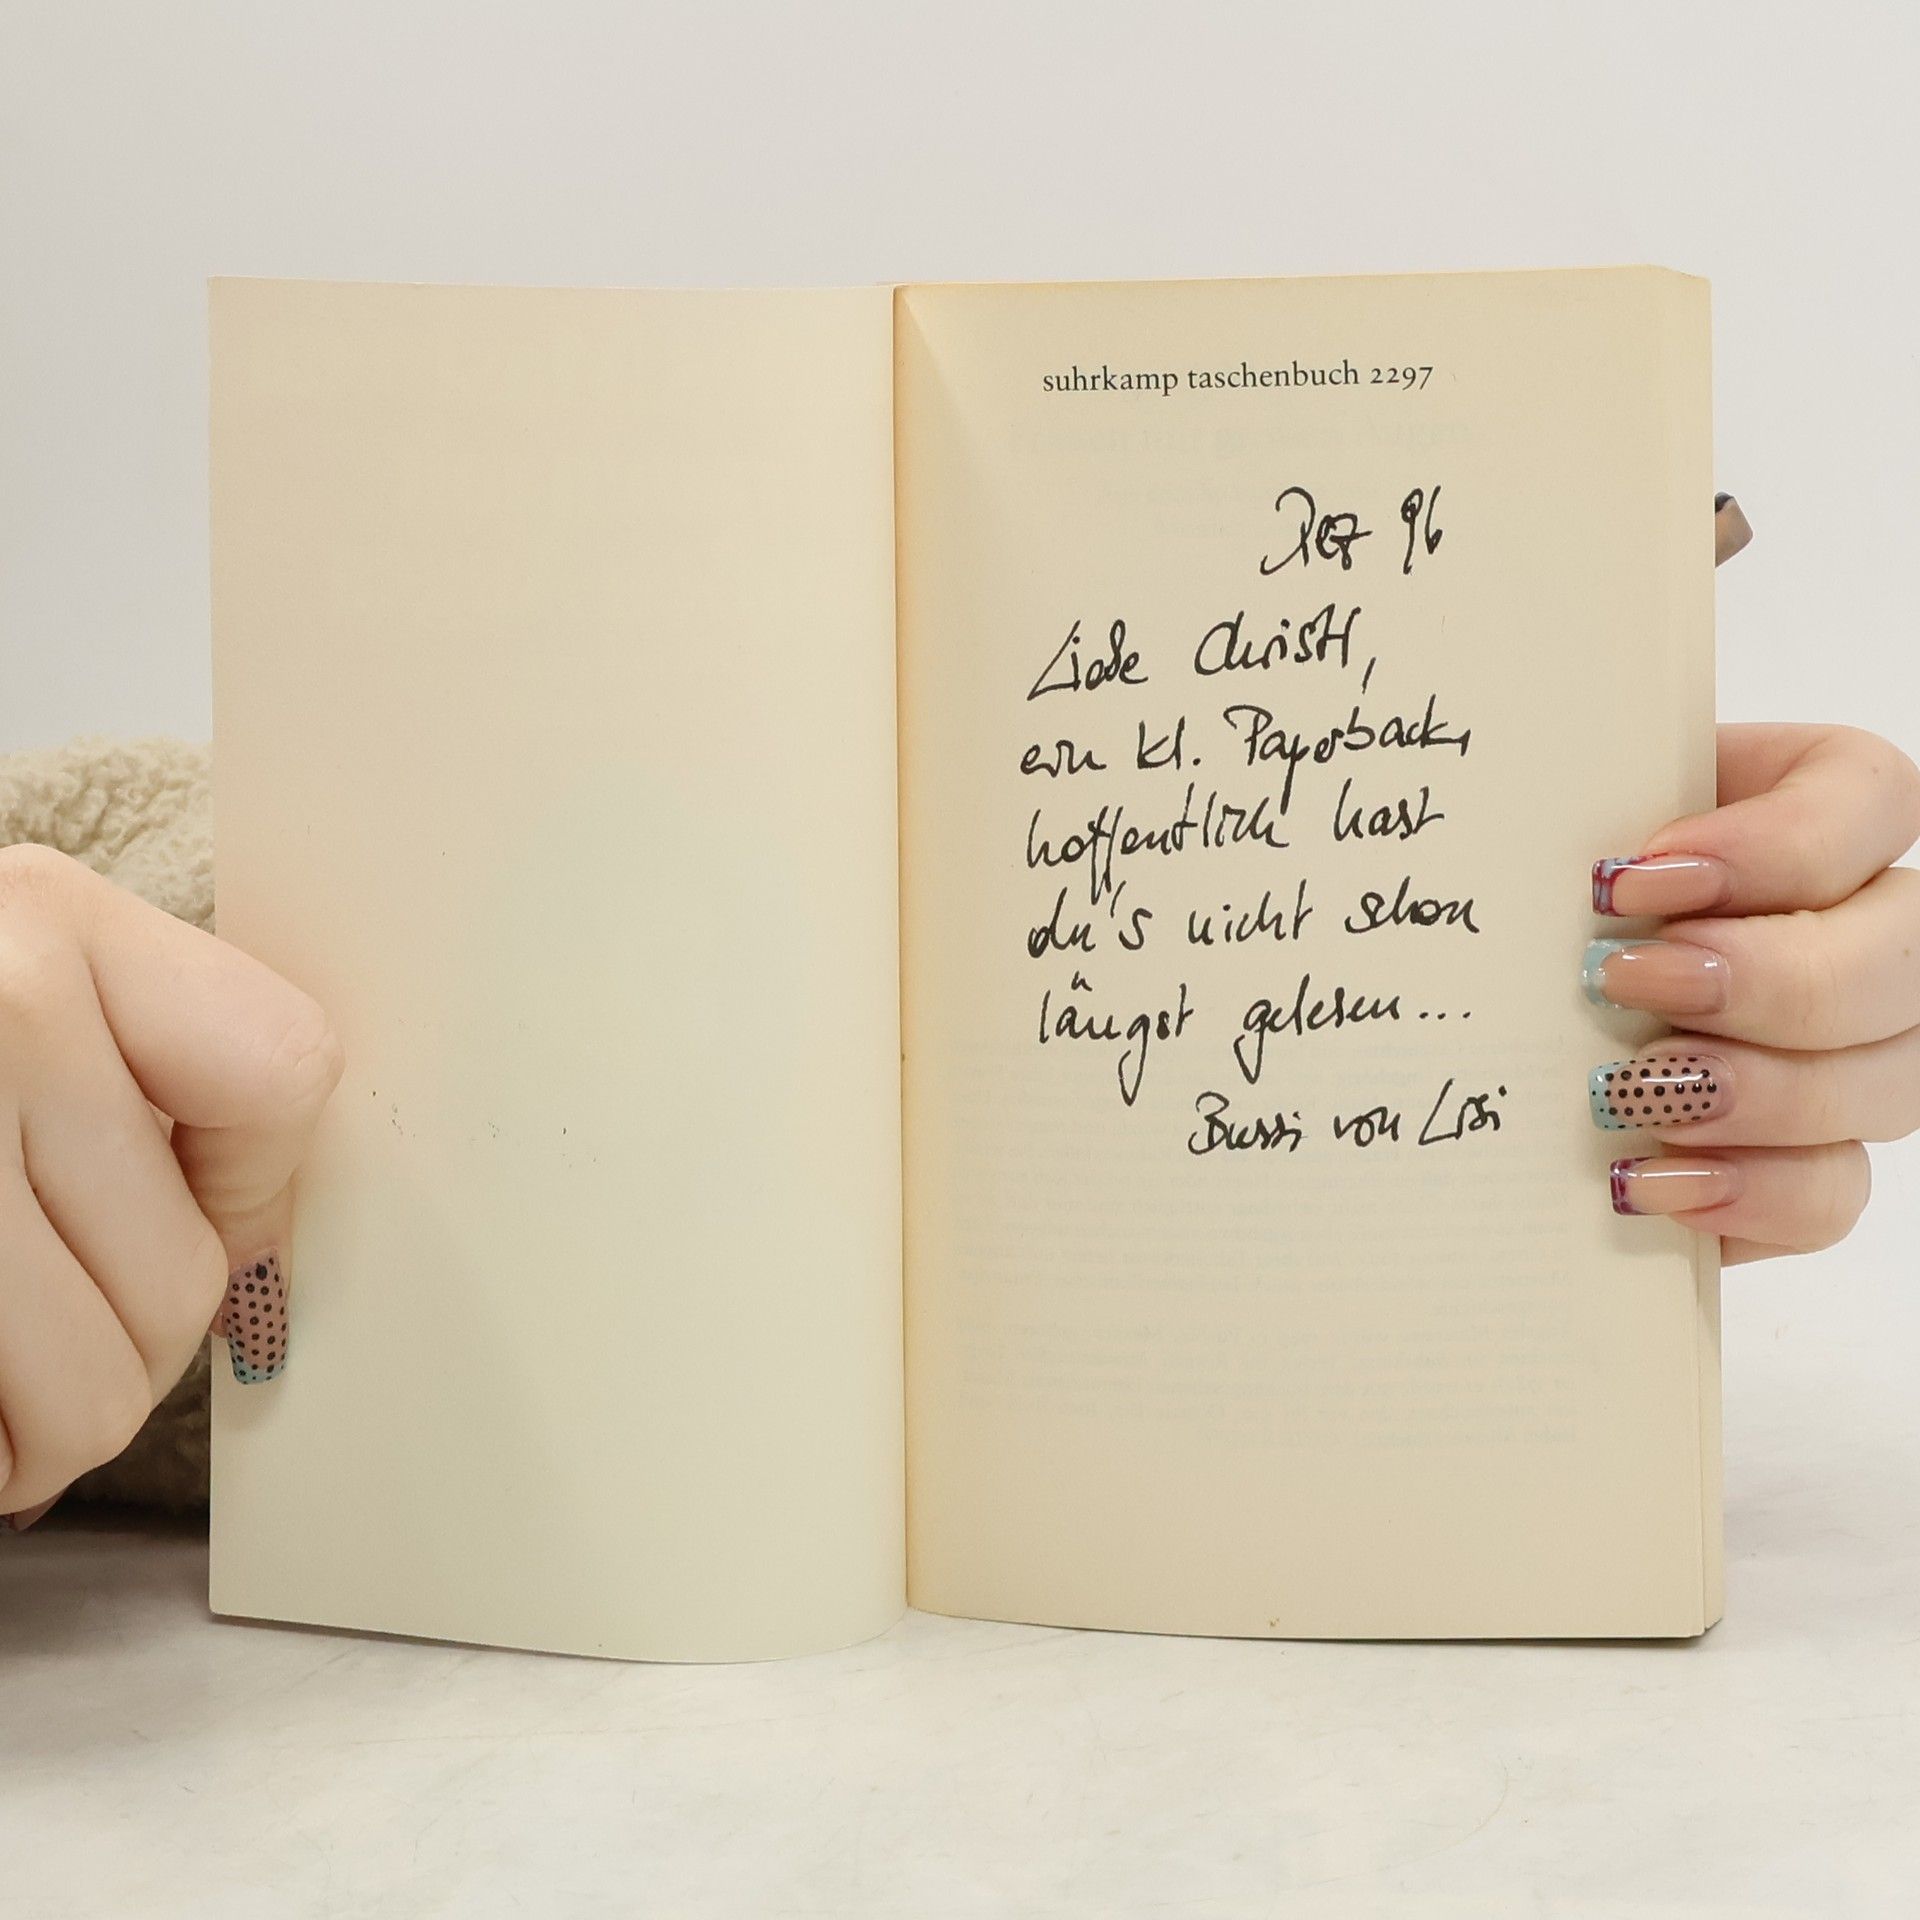 suhrkamp taschenbuch 2297
Dez 96
Liebe Christl,
ein kl. Paperback,
hoffentlich hast
du's nicht schon
längst gelesen...
Bussi von Lisi